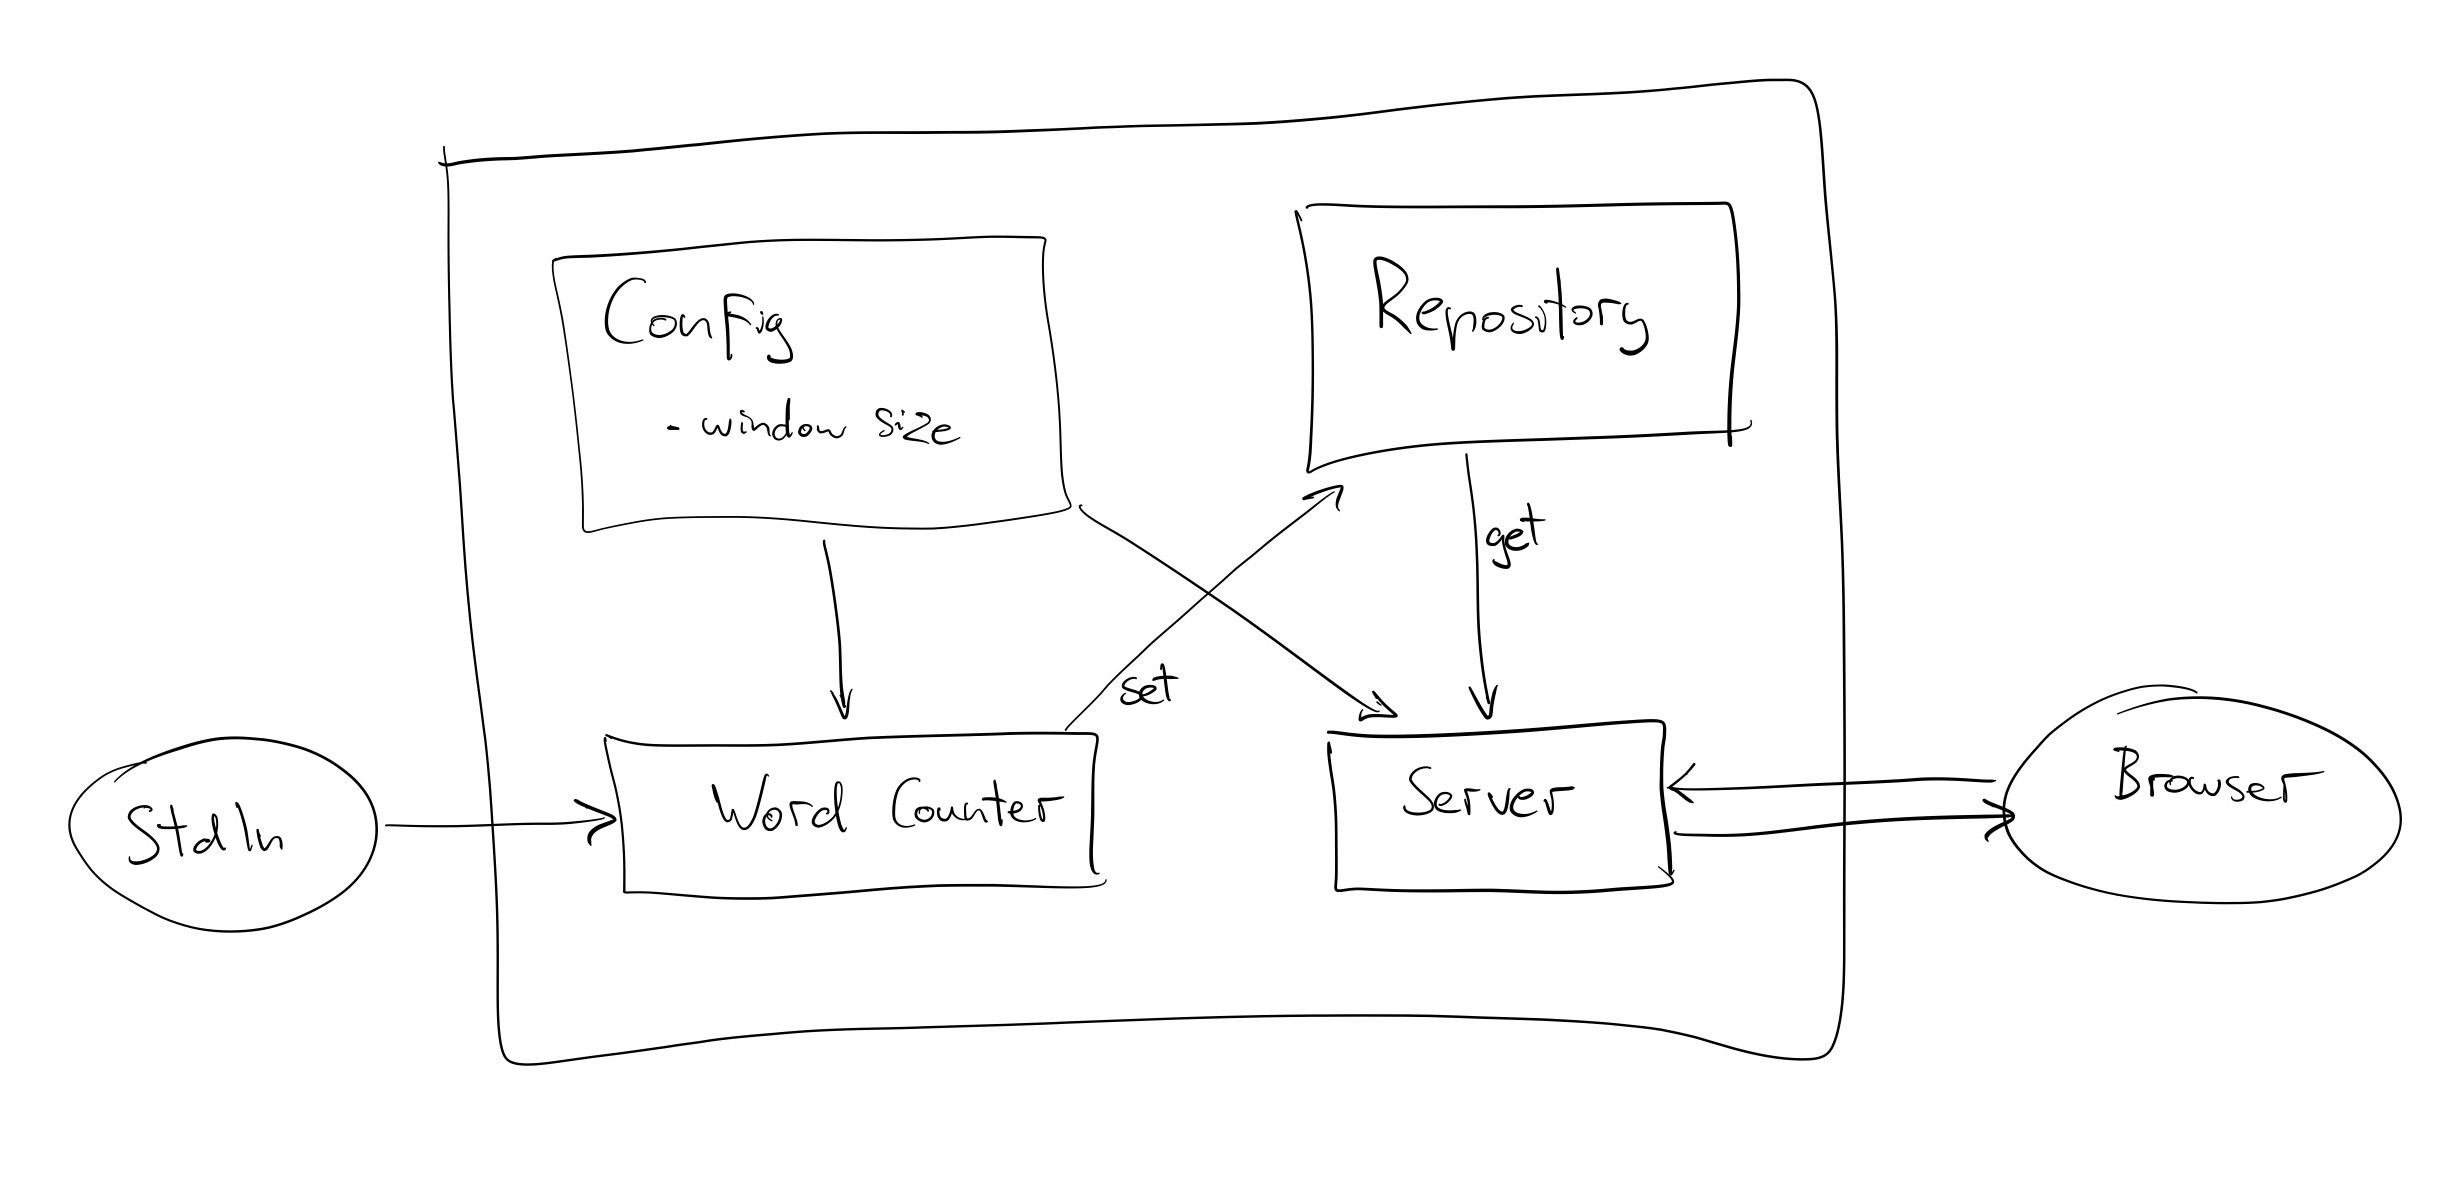 Config
- window size
Repository
get
set
StdIn
Word Counter
Server
Browser